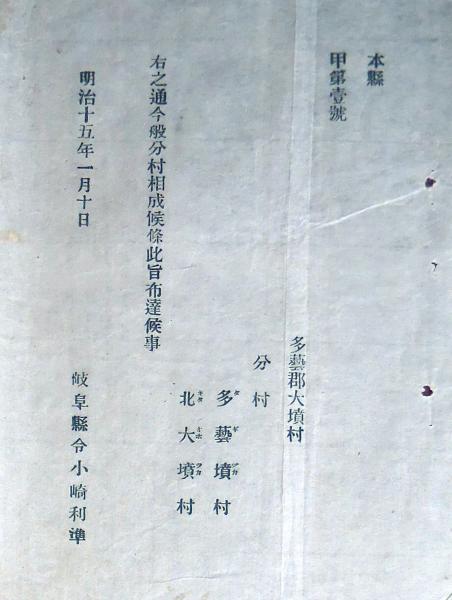 本縣
甲第壹號
多藝郡大墳村
分村
多藝墳村
タ ギ ヅカ
北大墳村
キタ オホ ヅカ
右之通今般分村相成候條此旨布達候事
明治十五年一月十日
岐阜縣令小崎利準